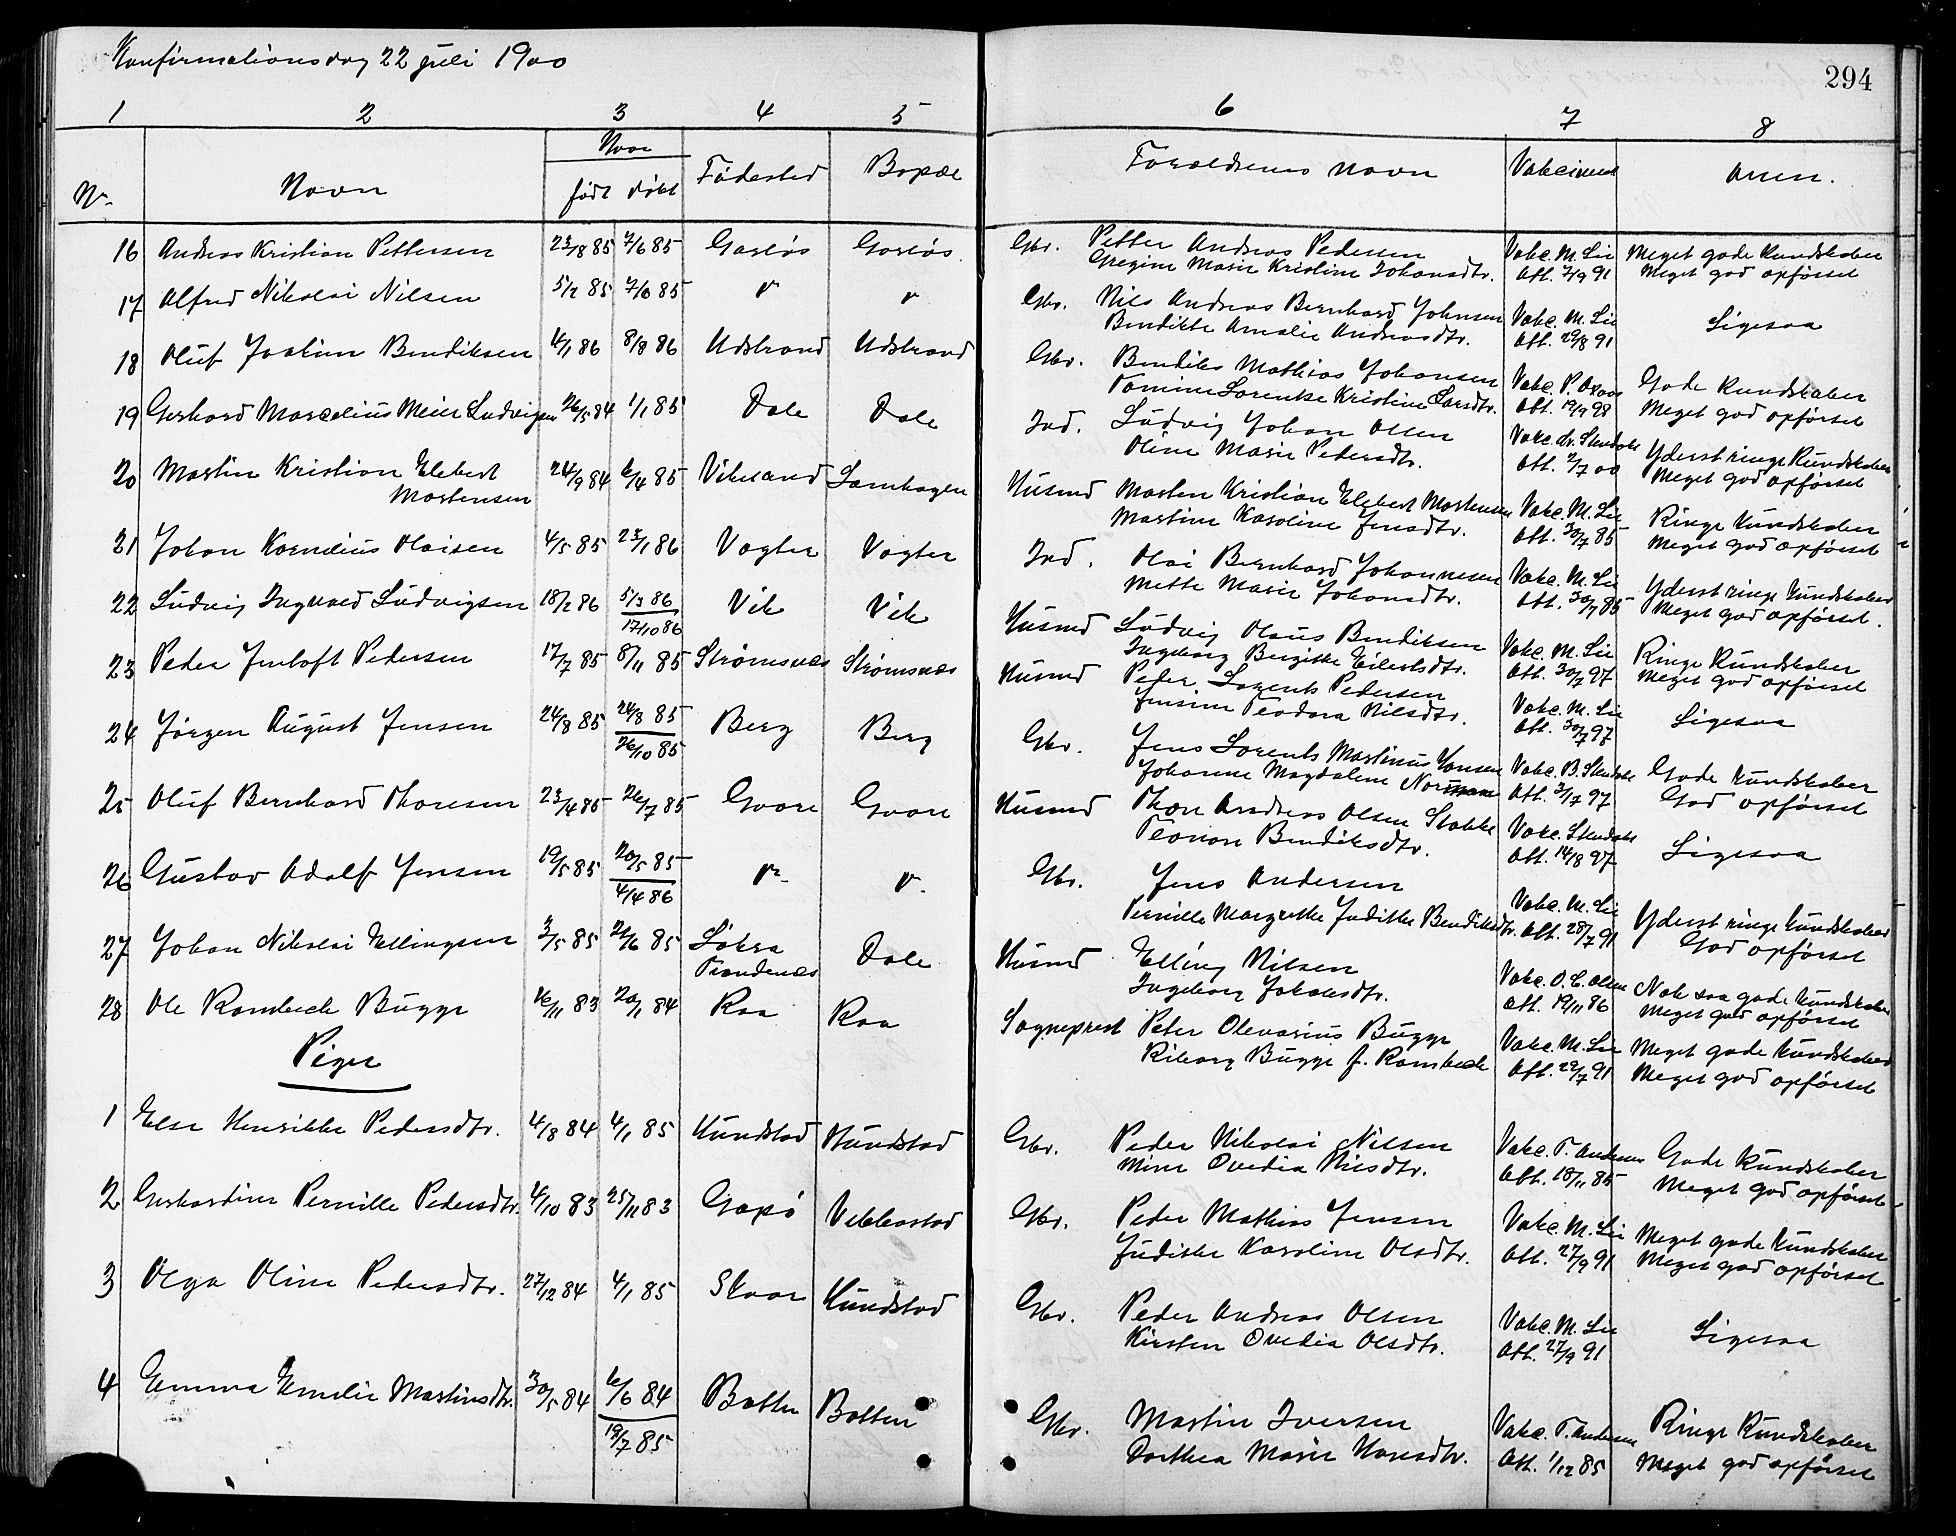 Konfirmationsdag 22 juli 1900
294
1 2 3 4 5 6 7 8
Naar
Nr. Navn født døbt Fødested Bopæl Forældrenes navn Vakcineret Anm.
16 Andreas Kristian Pettersen 23/8 85 7/6 85 Gaasløs Gaasløs. Gbr. Petter Andreas Pedersen Vakc. M. Lie Meget gode Kundskaber
Gregine Marie Kristine Johansdtr. Att. 7/9 91 Meget god opførsel
17 Alfred Nikolai Nilsen 5/2 85 7/6 85 " " Gbr. Nils Andreas Bernhard Johnsen Vakc. M. Lie Ligesaa
Bendikte Amalie Andreasdtr. Att. 29/8 91
18 Oluf Joakim Bendiksen 4/1 86 8/8 86 Udstrand Udstrand Gbr. Bendiks Mathias Johansen Vakc. P. Gode Kundskaber
Lorentse Kristine Larsdtr. Att. 19/9 98 Meget god opførsel
19 Gerhard Marcelius Meier Ludvigsen 26/5 84 1/1 85 Dale Dale Ind. Ludvig Johan Olsen Vakc. Yderst ringe Kundskaber
Oline Marie Pedersdtr. Att. 2/7 00 Meget god opførsel
20 Martin Kristian Elebert 24/9 84 6/4 85 Viksand Husmd Morten Kristian Elebert Mortensen Vakc. M. Lie Ringe Kundskaber
Mortensen Martine Karoline Jensdtr. Att. 30/7 85 Meget god opførsel
21 Johan Kornelius Olaisen 4/5 85 23/1 86 Vogter Vogter Ind. Olai Bernhard Johannesen Vakc. M. Lie Yderst ringe Kundskaber
Mette Marie Johansdtr. Att. 30/7 85 Meget god opførsel.
22 Ludvig Ingvald Ludvigsen 18/2 86 5/3 86 Vik Vik Husmd Ludvig Olaus Bendiksen Vakc. M. Lie Ringe Kundskaber
17/10 86 Ingeborg Bergitte Eilertsdtr. Att. 30/7 97 Meget god opførsel
23 Peder Jentoft Pedersen 17/7 85 8/11 85 Strømsnes Strømsnes Husmd Peder Lorents Pedersen Vakc. M. Lie Ligesaa
Jensine Teodora Nilsdtr. Att. 30/7 97
24 Jørgen August Jensen 24/8 85 24/8 85 Berg Berg Gbr. Jens Lorents Martinus Hansen Vakc. B. Gode Kundskaber
26/10 85 Johanne Magdalene Att. 3/7 97 God opførsel
25 Oluf Bernhard Thoresen 23/4 85 26/7 85 Gvare Gvare Husmd Thor Andreas Olsen Stokke Vakc. Ligesaa
Bendiksdtr. Att. 14/8 97
26 Gustav Adolf Jensen 19/5 85 20/5 85 " ". Gbr. Jens Andersen Vakc. M. Lie Yderst ringe Kundskaber
4/4 86 Pernille Margrethe Judithe Bendiksdtr. Att. 28/7 91 God opførsel
27 Johan Nikolai Ellingsen 3/5 85 21/6 85 Løksa Dale Husmd Elling Nilsen Vakc. O. C. Olsen Nok saa gode Kundskaber
Trondenes Ingeborg Jakobsdtr. Att. 19/11 86 Meget god opførsel
28 Ole Rambech Bugge 16/11 83 20/1 84 Raa Raa Sogneprest Peter Olevarius Bugge Vakc. M. Lie Meget gode Kundskaber
Riborg Bugge f. Rambech Att. 29/7 91 Meget god opførsel
Piger
1 Else Henrikke Pedersdtr. 4/8 84 4/1 85 Kundstad Kundstad Gbr. Peder Nikolai Nilsen Vakc. T. Andersen Gode Kundskaber
Mine Ovedia Nilsdtr. Att. 18/11 85 Meget god opførsel
2 Gerhardine Pernille Pedersdtr. 4/10 83 25/11 83 Gapø Vebbestad Gbr. Peder Mathias Jensen Vakc. M. Lie Meget gode Kundskaber
Judithe Karoline Olsdtr. Att. 27/9 91 Meget god opførsel
3 Olga Oline Pedersdtr. 27/12 84 4/1 85 Skaar Kundstad Gbr. Peder Andreas Olsen Vakc. M. Lie Ligesaa
Kirsten Ovedia Olsdtr. Att. 27/9 91
4 Emma Emelie Martinsdtr. 30/5 84 6/6 84 Botten Botten Gbr. Martin Iversen Vakc. T. Andersen Ringe Kundskaber
19/7 85 Dorthea Marie Hansdtr. Att. 1/12 85 Meget god opførsel